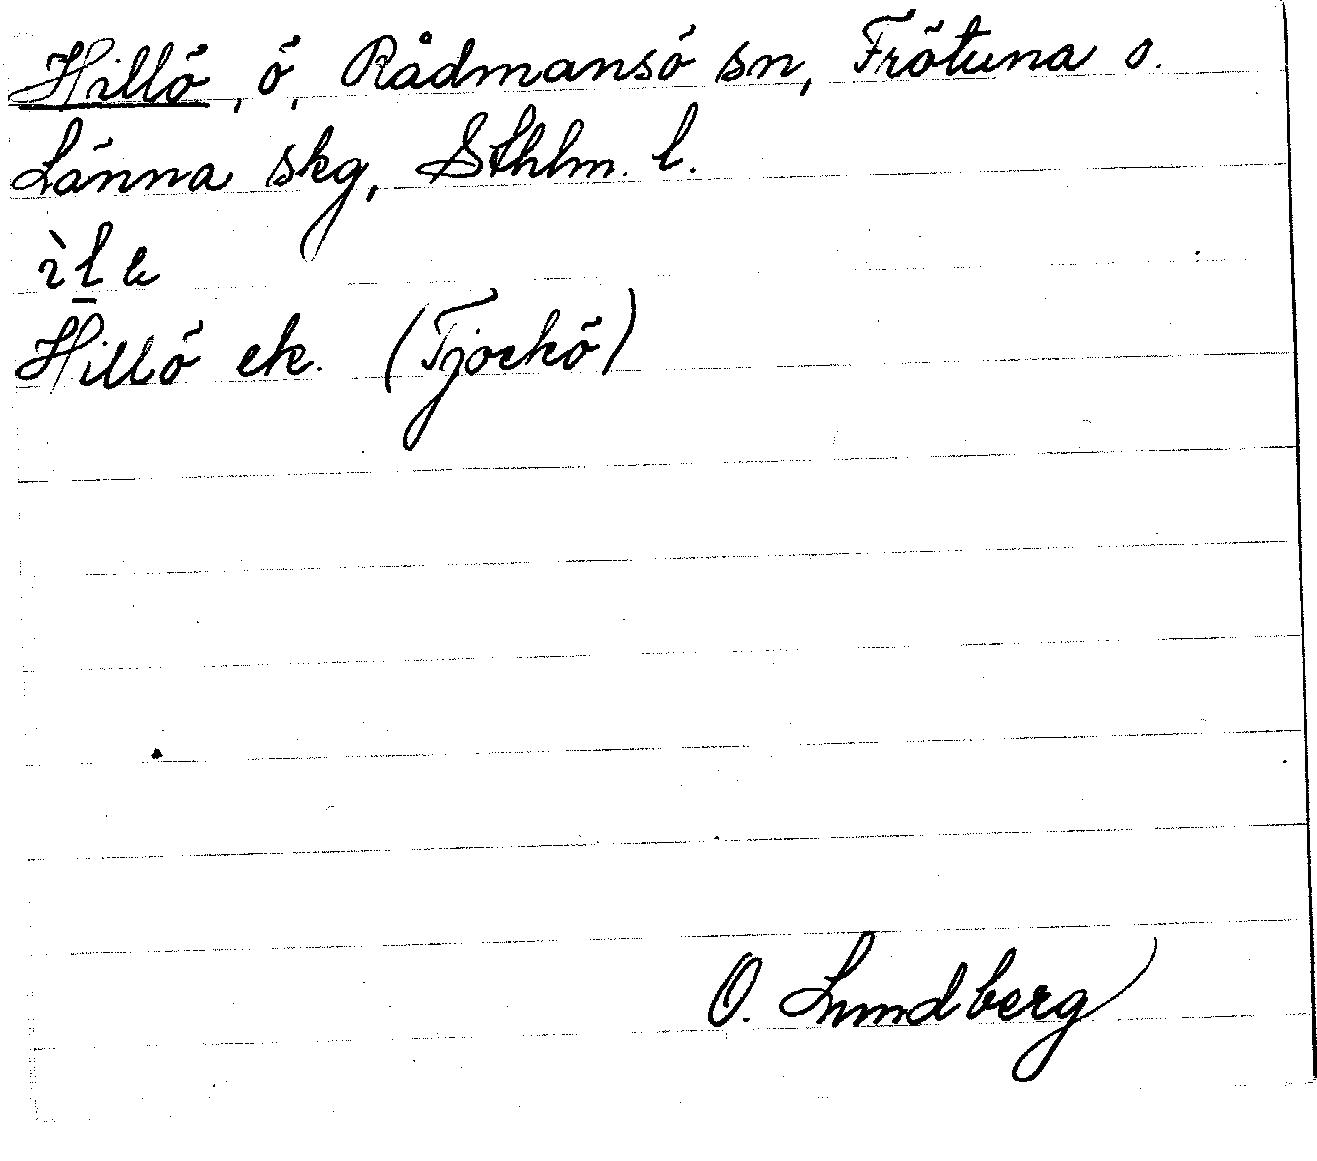 Hillö, ö, Rådmansö sn, Frötuna o.
Länna skg, Sthlm. l.
Hillö ek. (Tjockö)
O. Lundberg